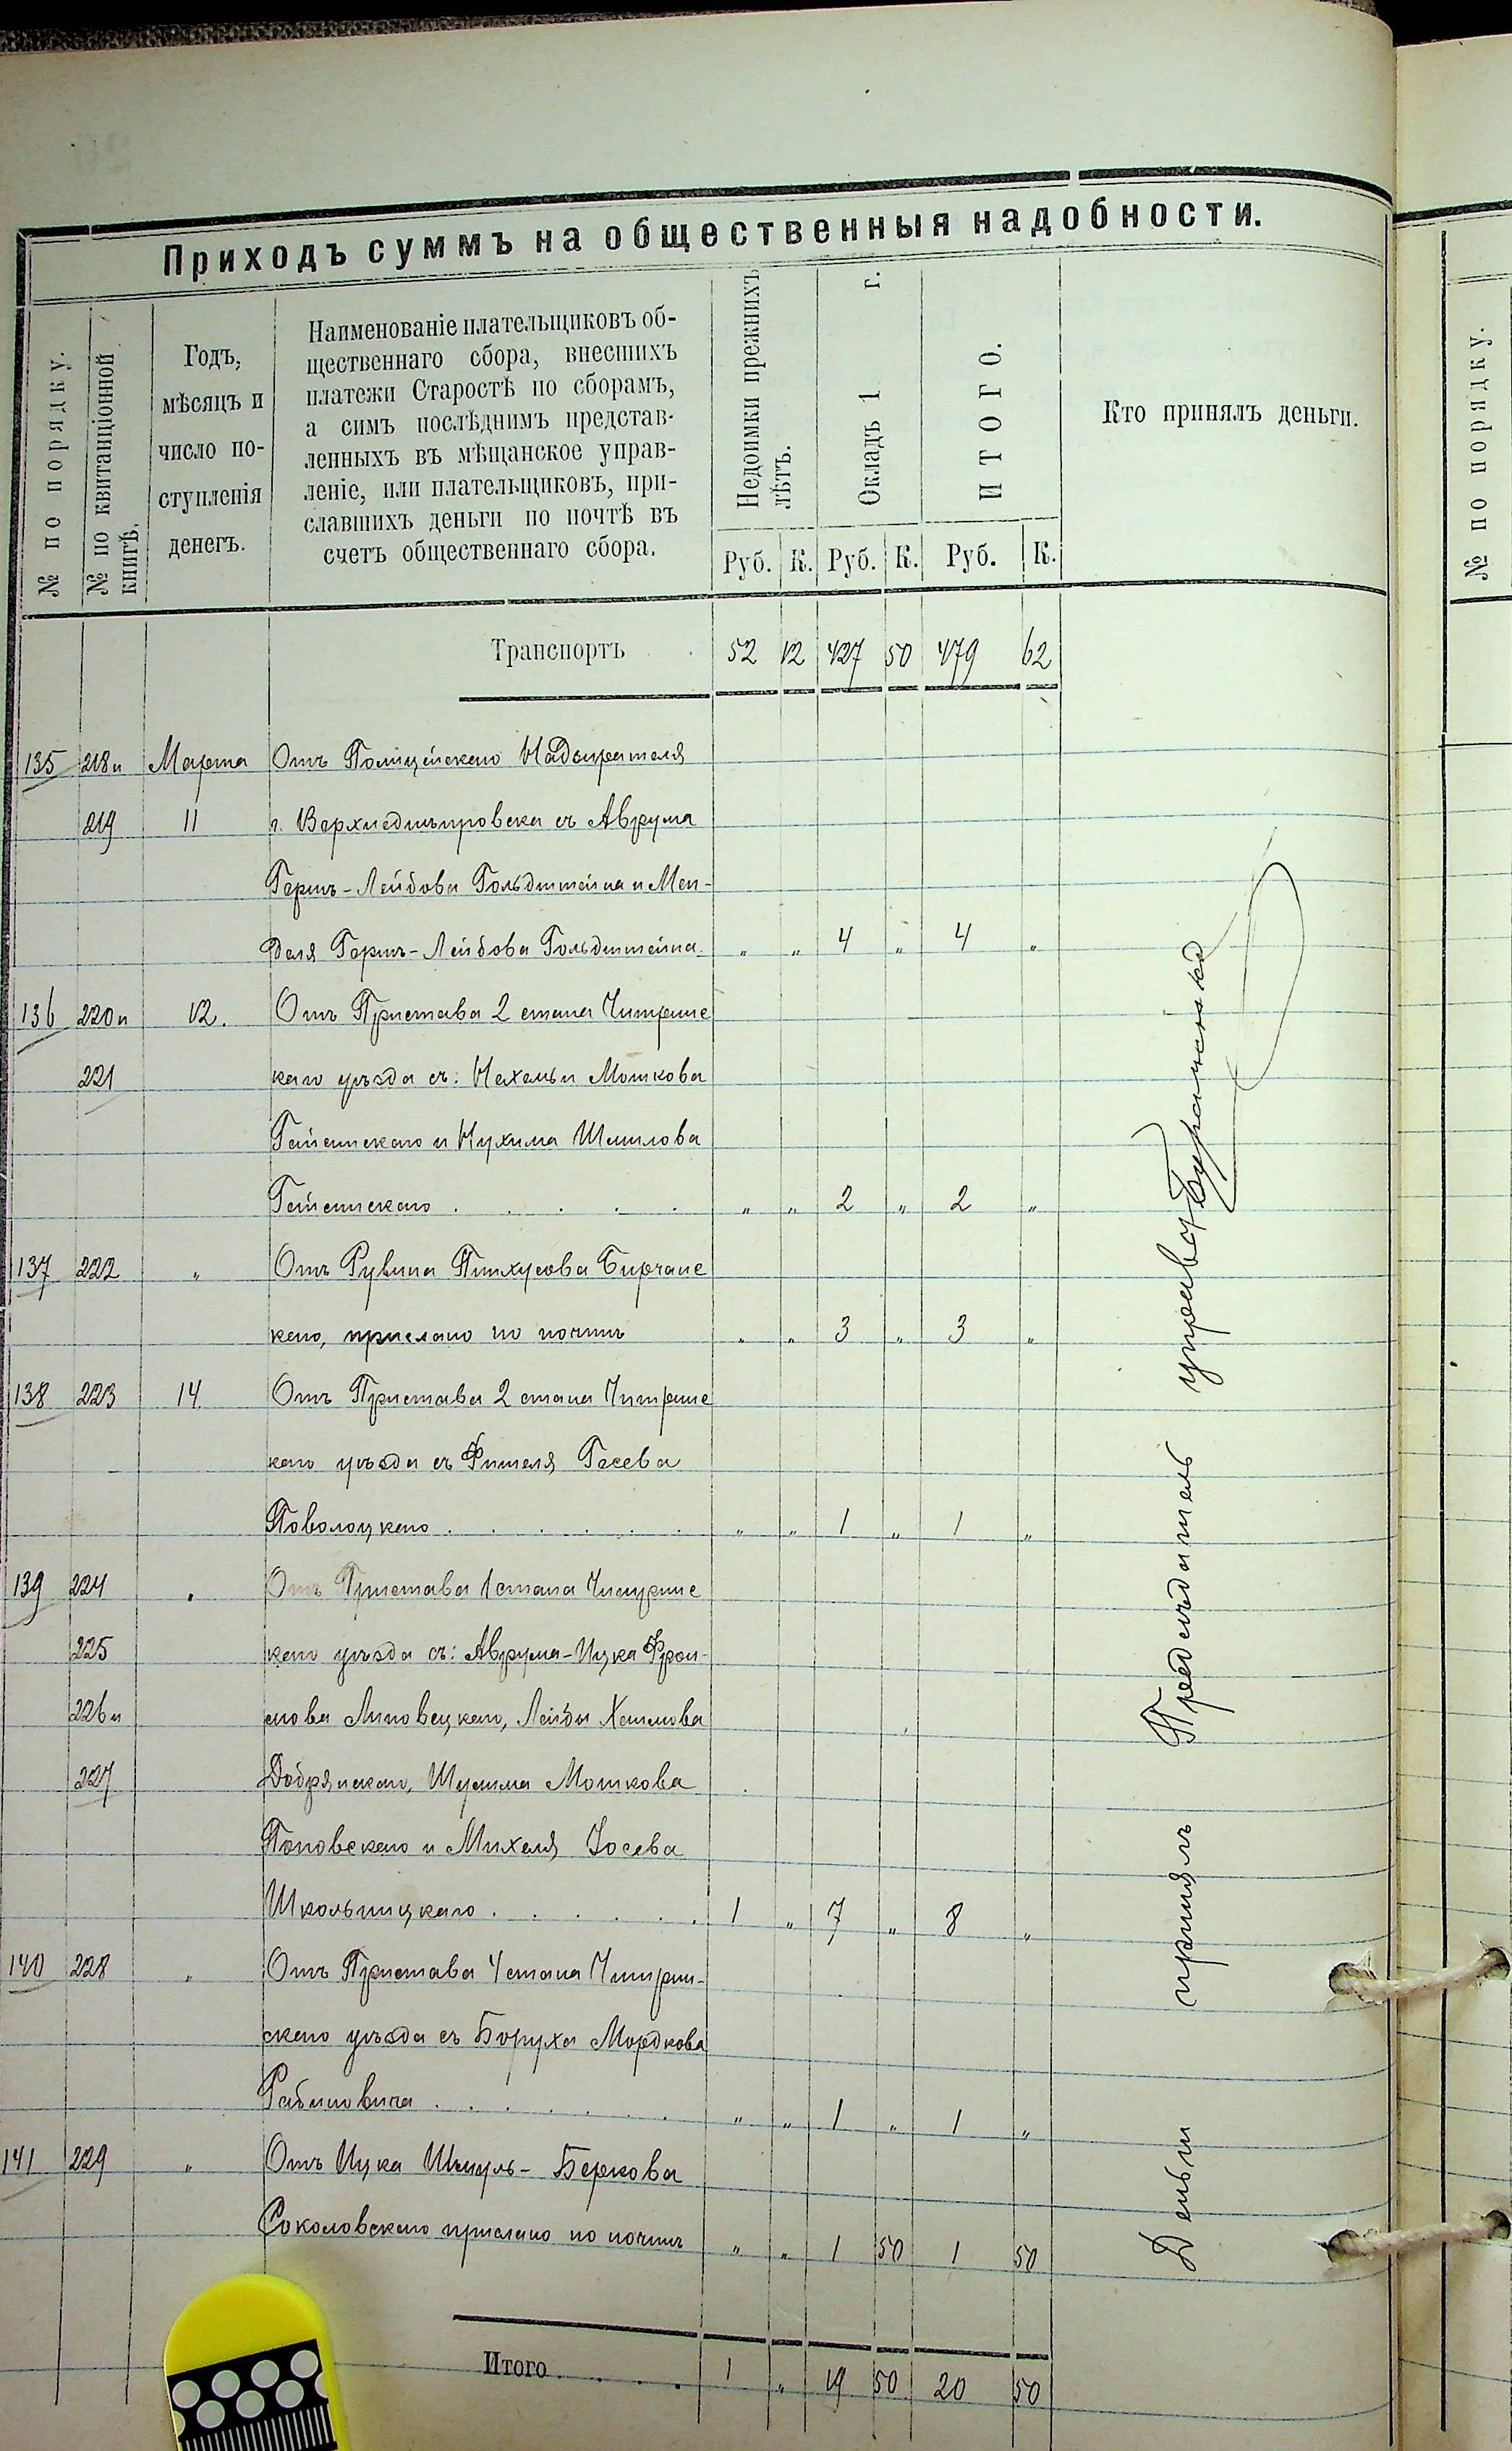 Приходъ суммъ на общественныя надобности.
№ по порядку.
№ по квитанціонной книгѣ.
Годъ,
мѣсяцъ и
число по-
ступленія
денегъ.
Наименованіе плательщиковъ об-
щественнаго сбора, внесшихъ
платежи Старостѣ по сборамъ,
а симъ послѣднимъ представ-
ленныхъ въ мѣщанское управ-
леніе, или плательщиковъ, при-
славшихъ деньги по почтѣ въ
счетъ общественнаго сбора.
Недоимки прежнихъ лѣтъ.
Окладъ 1 г.
ИТОГО.
Кто принялъ деньги.
Руб. К. Руб. К. Руб. К.
Транспортъ 52 12 427 50 479 62
135 218 и Марта Отъ Поліцейскаго Надзирателя
219 11 г. Верхнеднѣпровска съ Аврума
Гершъ-Лейбова Гольдштейна и Мен-
деля Гершъ-Лейбова Гольдштейна. „ „ 4 „ 4 „
136 220 и 12. Отъ Пристава 2 стана Чигринс
221 каго уѣзда съ: Нахамьи Мошкова
и Нухима Шмилова
„ „ 2 „ 2 „
137 222 „ Отъ Рувина Пинхусова Бирчанс
каго, прислано по почтѣ „ „ 3 „ 3 „
138 223 14. Отъ Пристава 2 стана Чигринс
каго уѣзда съ Фишеля
Поволоцкаго . . . . . . „ „ 1 „ 1 „
139 224 „ Отъ Пристава 1 стана Чигринс
225 каго уѣзда съ: Аврума-Ицка Фрои-
226 и мова Липовецкаго, Лейбы Хаимова
227 Добрянскаго, Шулима Мошкова
Поповскаго и Михеля Іосева
Школьницкаго . . . . . . 1 „ 7 „ 8 „
140 228 „ Отъ Пристава 4 стана Чигрин-
скаго уѣзда съ Боруха Мордкова
Рабиновича . . . . . . „ „ 1 „ 1 „
141 229 „ Отъ Ицка Шмуль-Беркова
Соколовскаго прислано по почтѣ „ „ 1 50 1 50
Итого . . . . 1 „ 19 50 20 50
Деньги принялъ Предсѣдатель управы
№ по порядку.